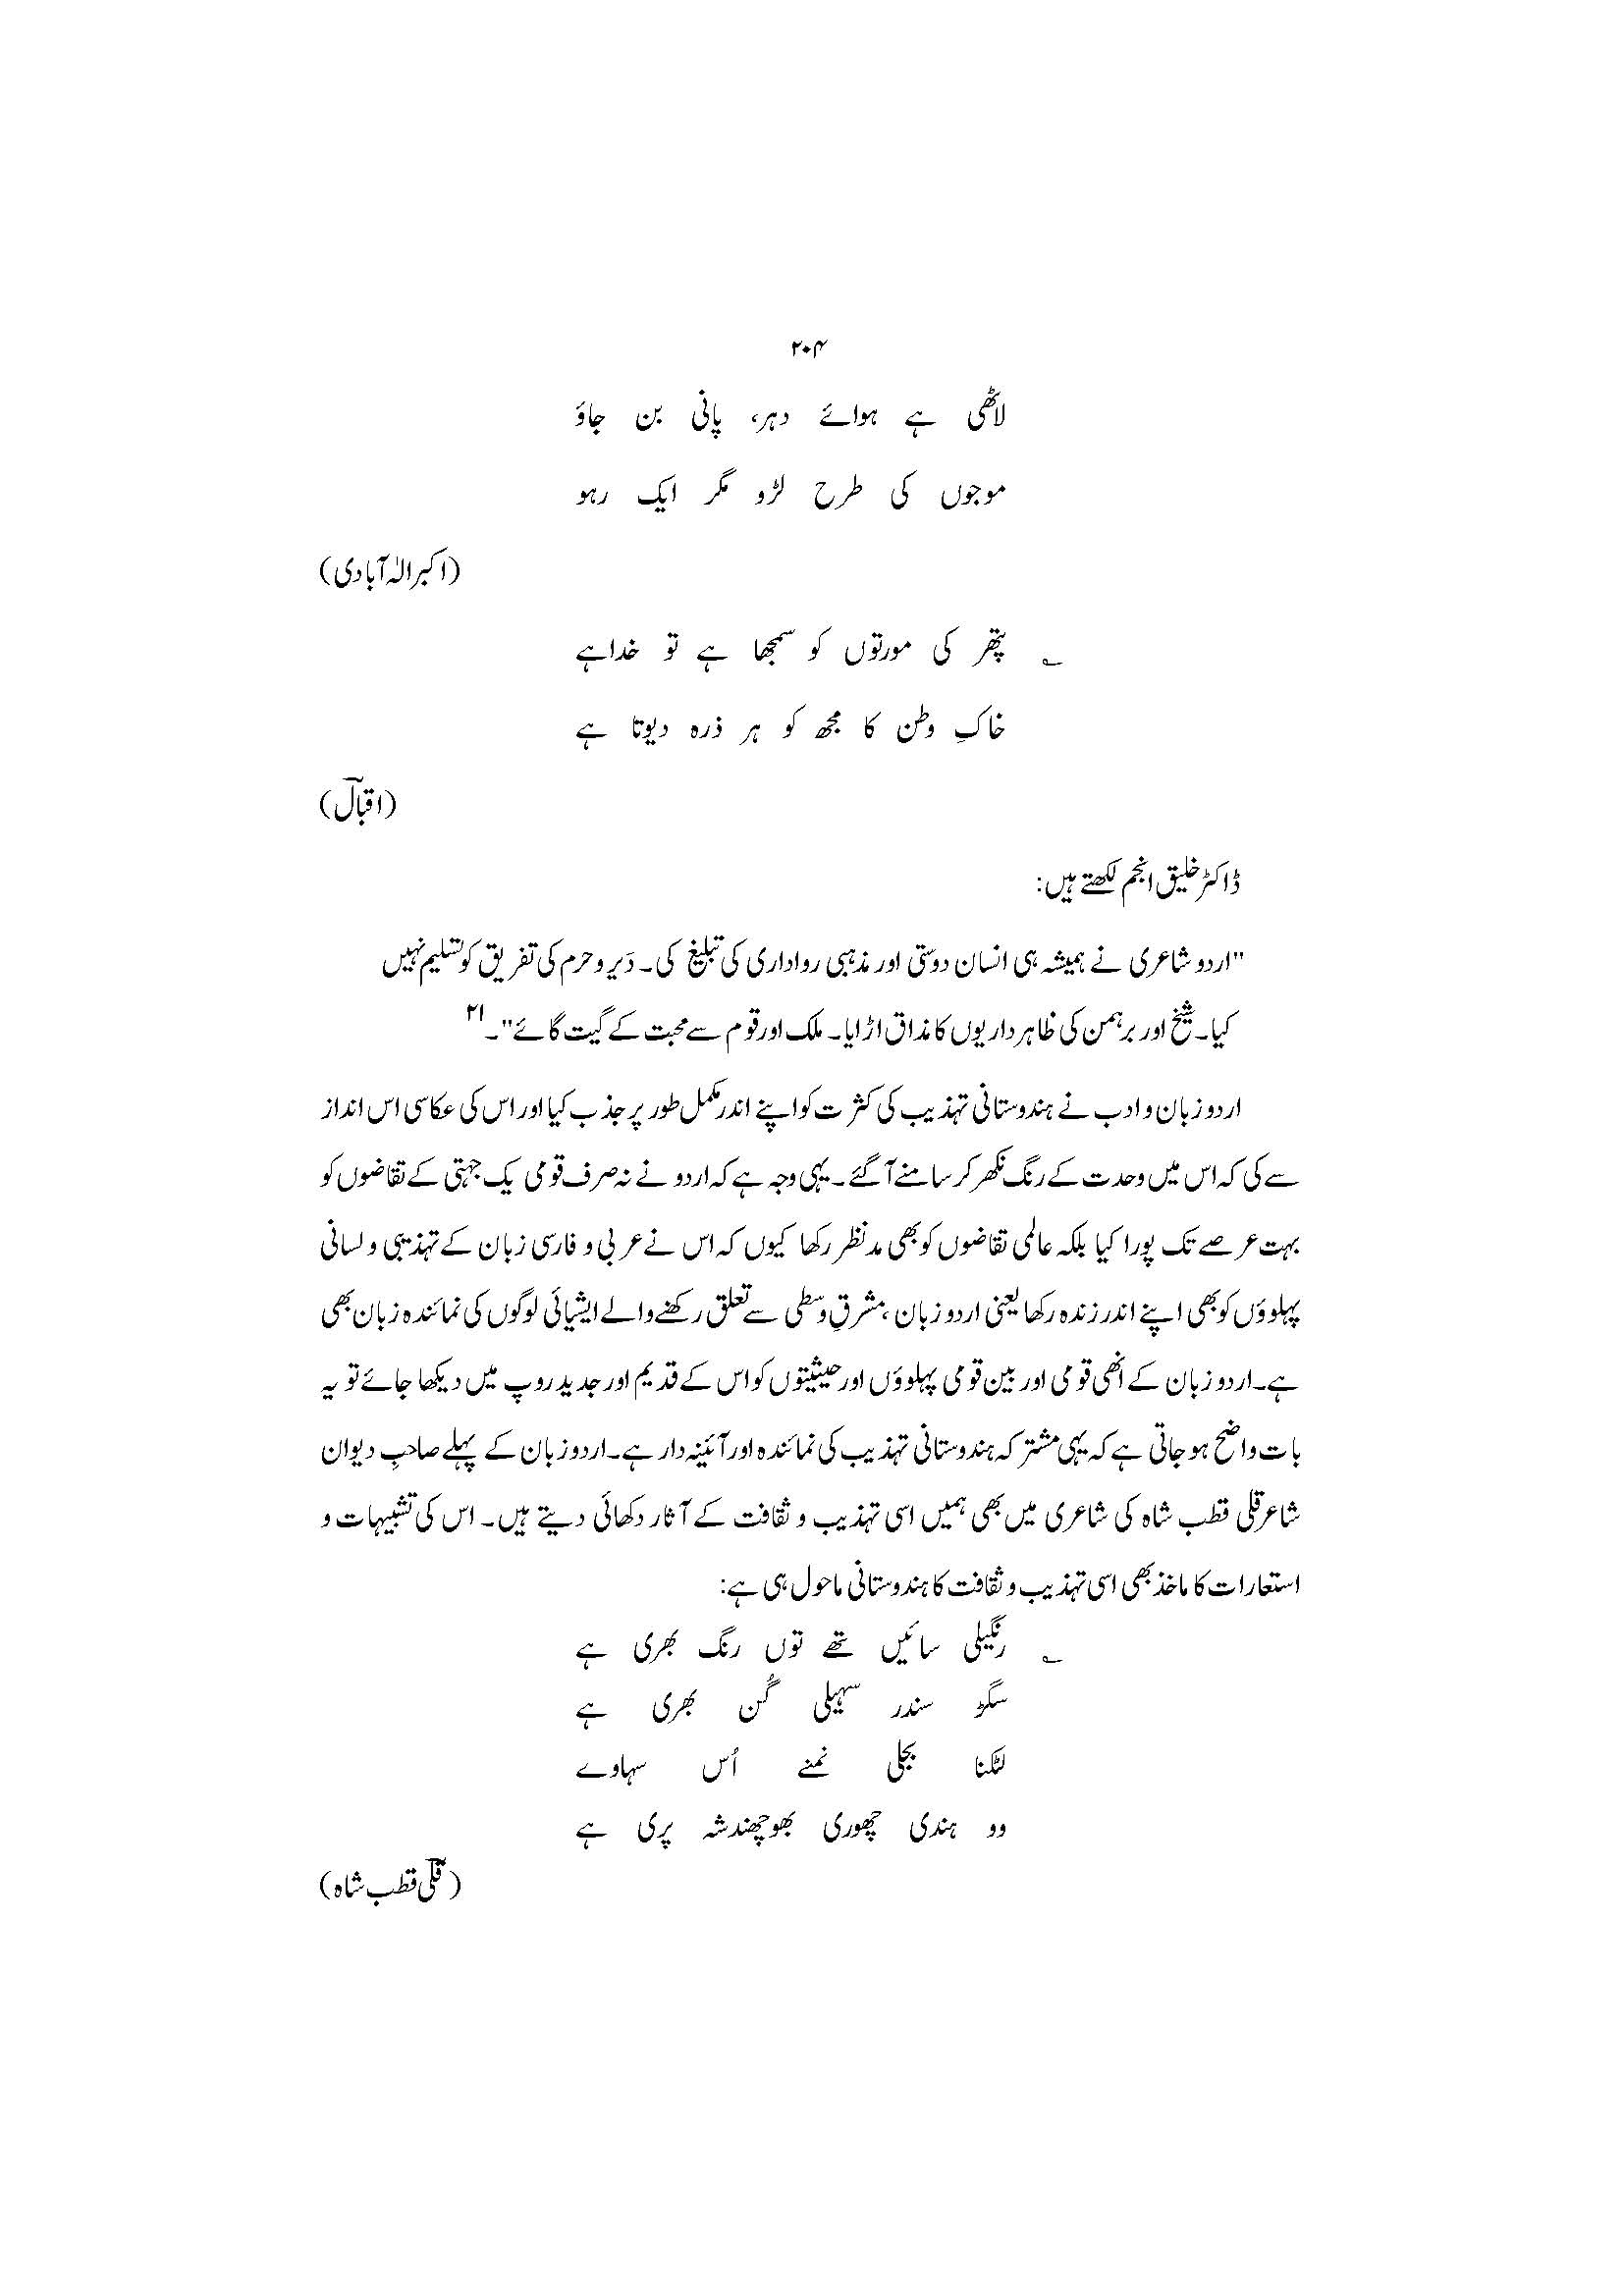 ۲۰۴
لاٹھی ہے ہوائے دہر، پانی بن جاؤ
موجوں کی طرح لڑو مگر ایک رہو
(اکبر الٰہ آبادی)
؎ پتھر کی مورتوں کو سمجھا ہے تو خدا ہے
خاکِ وطن کا مجھ کو ہر ذرہ دیوتا ہے
(اقبالؔ)
ڈاکٹر خلیق انجم لکھتے ہیں:
"اردو شاعری نے ہمیشہ ہی انسان دوستی اور مذہبی رواداری کی تبلیغ کی۔ دَیر و حرم کی تفریق کو تسلیم نہیں
کیا۔ شیخ اور برہمن کی ظاہر داریوں کا مذاق اڑایا۔ ملک اور قوم سے محبت کے گیت گائے"۔۲۱
اردو زبان و ادب نے ہندوستانی تہذیب کی کثرت کو اپنے اندر مکمل طور پر جذب کیا اور اس کی عکاسی اس انداز
سے کی کہ اس میں وحدت کے رنگ نکھر کر سامنے آ گئے۔ یہی وجہ ہے کہ اردو نے نہ صرف قومی یک جہتی کے تقاضوں کو
بہت عرصے تک پورا کیا بلکہ عالمی تقاضوں کو بھی مدنظر رکھا کیوں کہ اس نے عربی و فارسی زبان کے تہذیبی و لسانی
پہلوؤں کو بھی اپنے اندر زندہ رکھا یعنی اردو زبان، مشرقِ وسطی سے تعلق رکھنے والے ایشیائی لوگوں کی نمائندہ زبان بھی
ہے۔ اردو زبان کے انھی قومی اور بین قومی پہلوؤں اور حیثیتوں کو اس کے قدیم اور جدید روپ میں دیکھا جائے تو یہ
بات واضح ہو جاتی ہے کہ یہی مشترکہ ہندوستانی تہذیب کی نمائندہ اور آئینہ دار ہے۔ اردو زبان کے پہلے صاحبِ دیوان
شاعر قلی قطب شاہ کی شاعری میں بھی ہمیں اسی تہذیب و ثقافت کے آثار دکھائی دیتے ہیں۔ اس کی تشبیہات و
استعارات کا ماخذ بھی اسی تہذیب و ثقافت کا ہندوستانی ماحول ہی ہے:
؎ رنگیلی سائیں تھے توں رنگ بھری ہے
سگڑ سندر سہیلی گُن بھری ہے
لٹکنا بجلی نمنے اُس سہاوے
وو ہندی چھوری بھوچھندشہ پری ہے
(قلیؔ قطب شاہ)